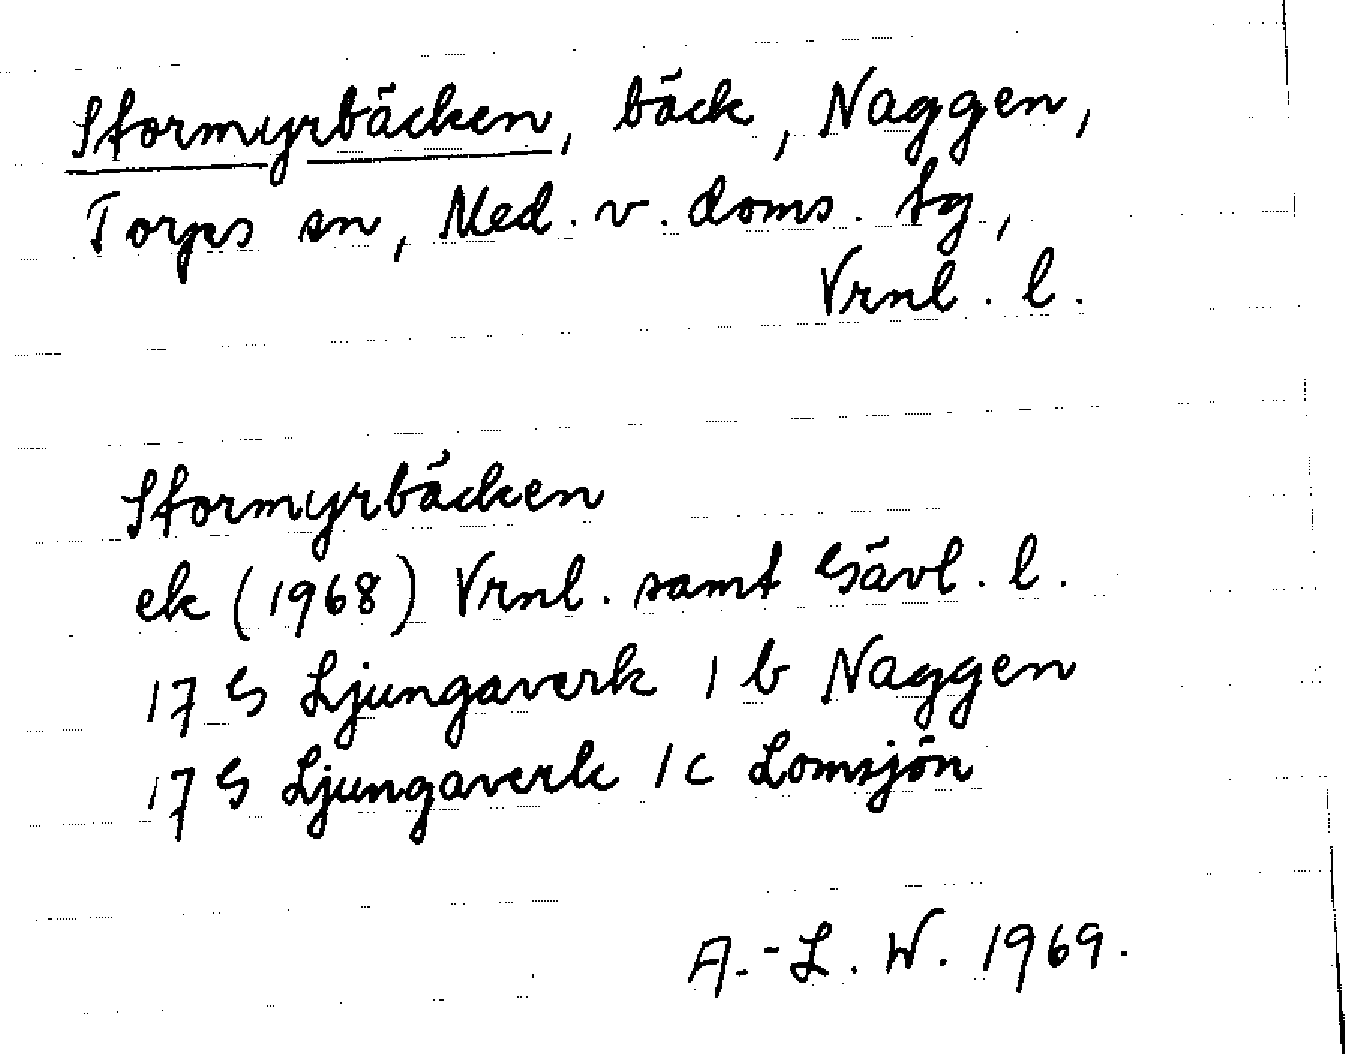 Stormyrbäcken, bäck, Naggen,
Torps sn, Med. v. doms. tg,
Vrnl. l.
Stormyrbäcken
ek (1968) Vrnl. samt Gävl. l.
17 G Ljungaverk 1 b Naggen
17 G Ljungaverk 1 c Lomsjön
A.-L. W. 1969.